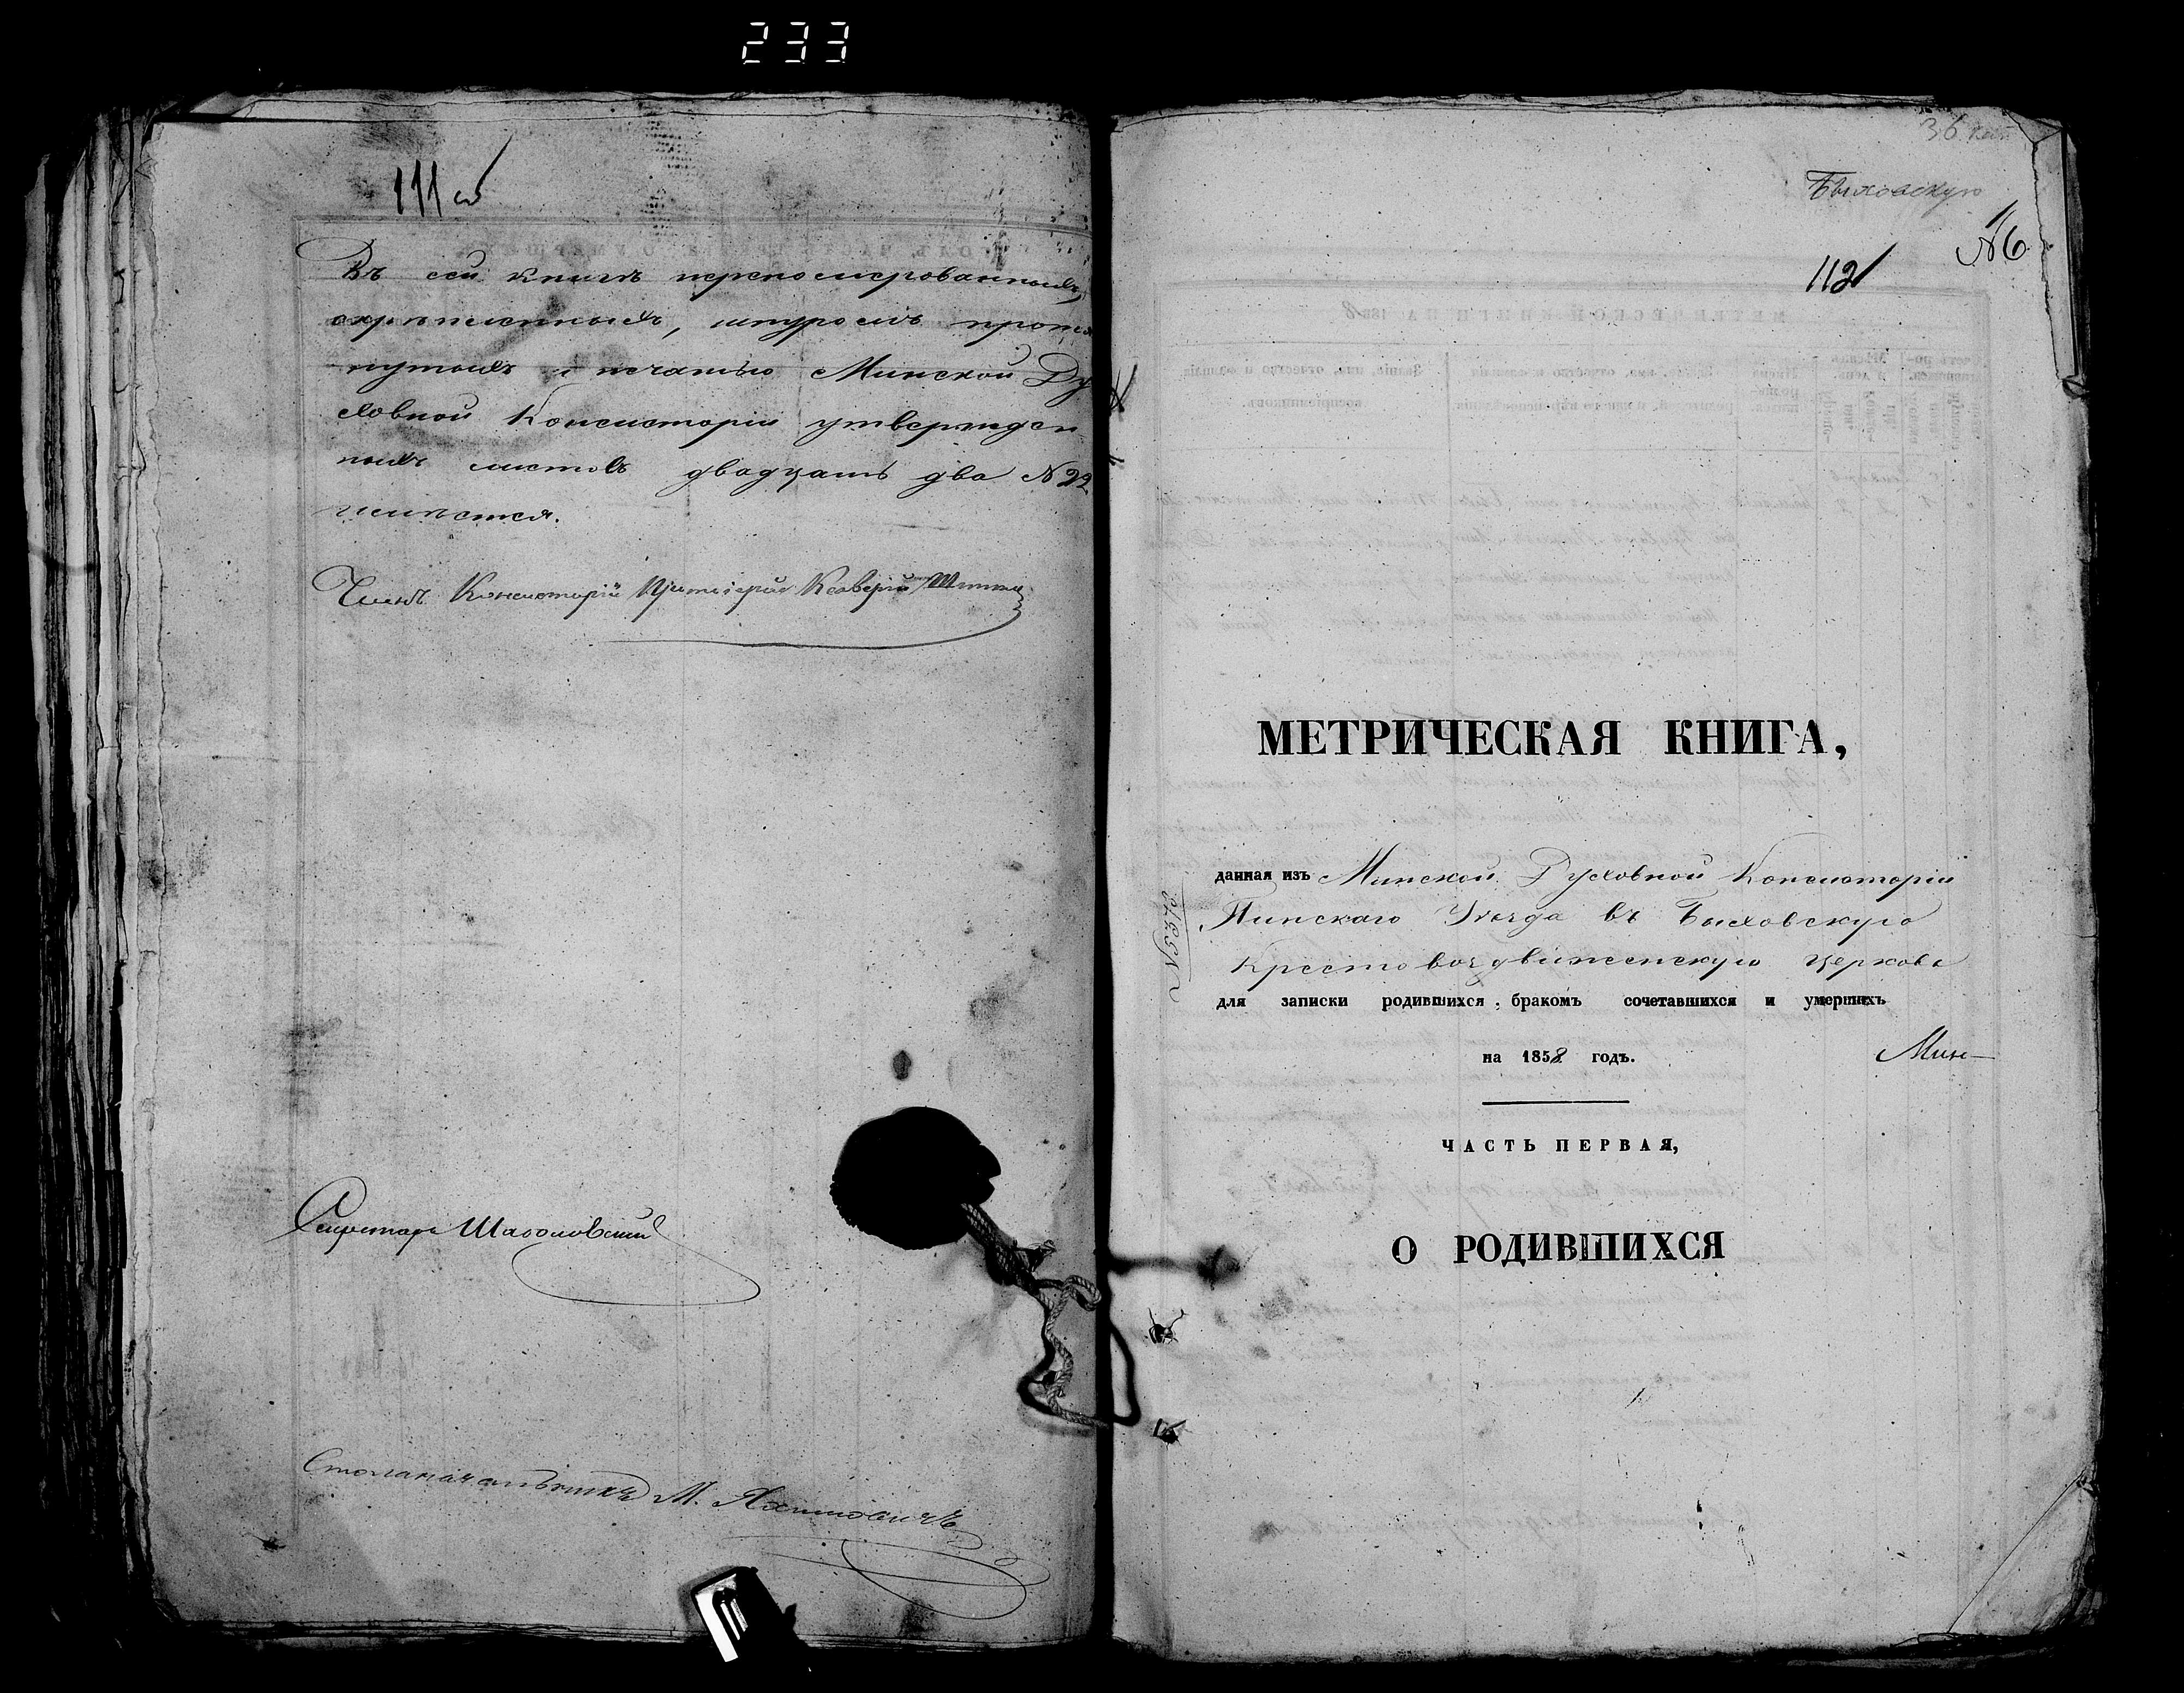 233
111 об
Въ сей книгѣ перенумерованныхъ,
скрѣпленныхъ, шнуромъ протя
нутыхъ и печатью Минской Ду
ховной Консисторіи утвержден
ныхъ листовъ двадцать два N 22
числится.
Членъ Консисторіи Протоіерей Ксаверій
Секретарь
Столоначальникъ М.
36
Быховскую
N6
112
МЕТРИЧЕСКАЯ КНИГА,
данная изъ Минской Духовной Консисторіи
Пинскаго Уѣзда въ Быховскую
Крестовоздвиженскую церковь
для записки родившихся, бракомъ сочетавшихся и умершихъ
на 1858 годъ.
Мин-
ЧАСТЬ ПЕРВАЯ,
О РОДИВШИХСЯ